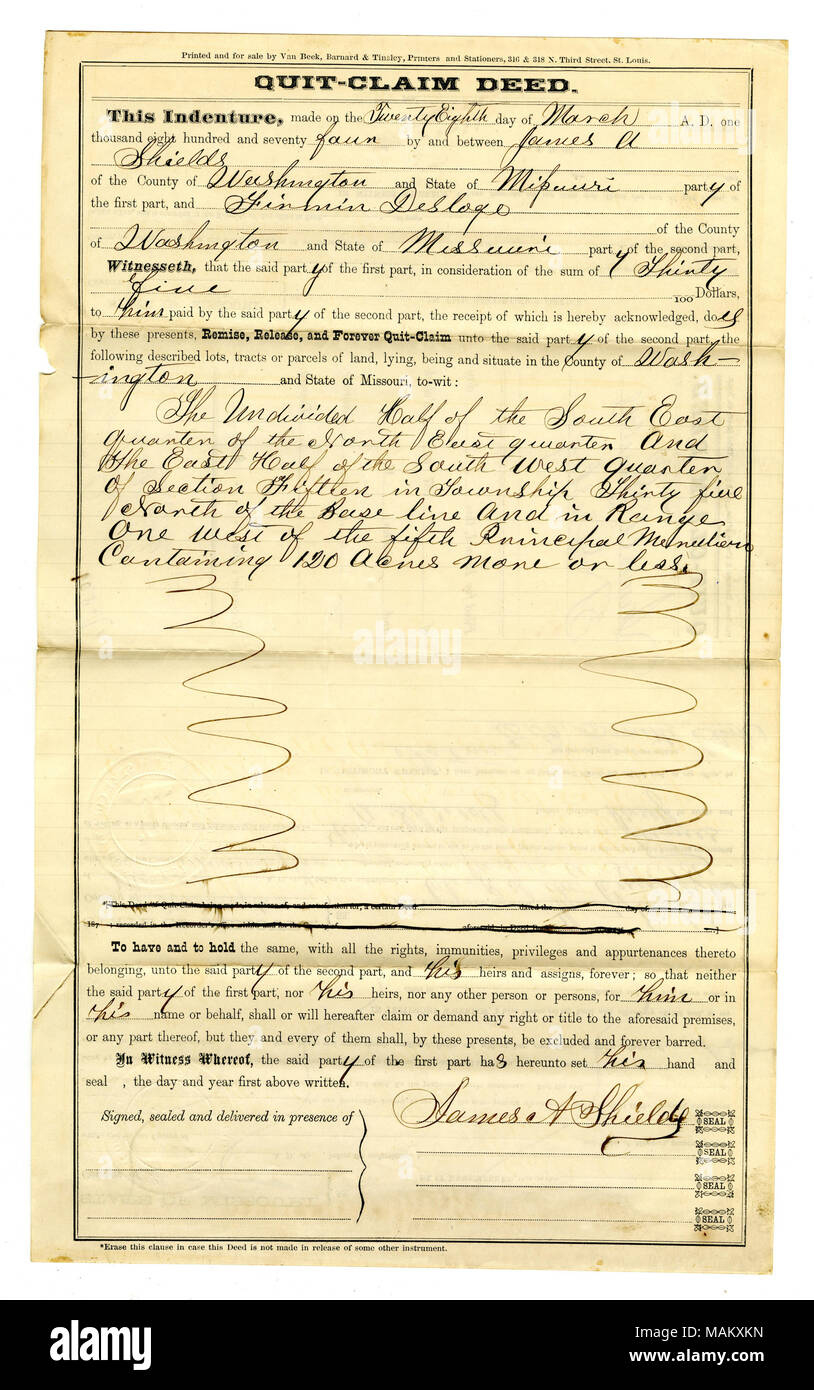 Printed and for sale by Van Beek, Barnard & Tinsley, Printers and Stationers, 316 & 318 N. Third Street, St. Louis.
QUIT-CLAIM DEED.
This Indenture, made on the Twenty Eighth day of March A. D. one
thousand eight hundred and seventy four by and between James A
Shields
of the County of Washington and State of Missouri party of
the first part, and Firmin Desloge
of the County
of Washington and State of Missouri party of the second part,
Witnesseth, that the said party of the first part, in consideration of the sum of Thirty
five 100 Dollars,
to him paid by the said party of the second part, the receipt of which is hereby acknowledged, does
by these presents, Remise, Release, and Forever Quit-Claim unto the said party of the second part, the
following described lots, tracts or parcels of land, lying, being and situate in the County of Wash-
ington and State of Missouri, to-wit:
The Undivided Half of the South East
quarter of the North East quarter And
the East Half of the South West quarter
of Section Fifteen in Township Thirty five
North of the Base line And in Range
One West of the fifth Principal Meridian
Containing 120 Acres more or less.
*[This Deed of Quit-Claim being made in release of, and satisfaction for, a certain Deed dated the day of
187
To have and to hold the same, with all the rights, immunities, privileges and appurtenances thereto
belonging, unto the said party of the second part, and his heirs and assigns, forever; so that neither
the said party of the first part, nor his heirs, nor any other person or persons, for him or in
his name or behalf, shall or will hereafter claim or demand any right or title to the aforesaid premises,
or any part thereof, but they and every of them shall, by these presents, be excluded and forever barred.
In Witness Whereof, the said party of the first part has hereunto set his hand and
seal , the day and year first above written.
Signed, sealed and delivered in presence of
James A Shields SEAL
SEAL
SEAL
SEAL
*Erase this clause in case this Deed is not made in release of some other instrument.
alamy
Image ID: MAKXKN
www.alamy.com